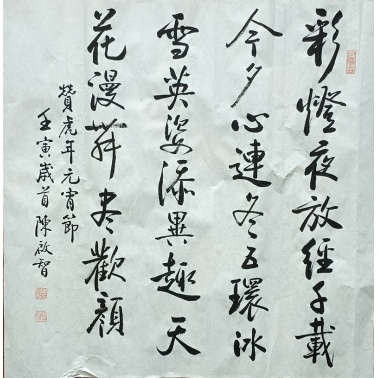 彩燈夜放經千載
今夕心連冬五環冰
雪英姿添異趣天
花漫舞盡歡顏
贊虎年元宵節
壬寅歲首陳啟智